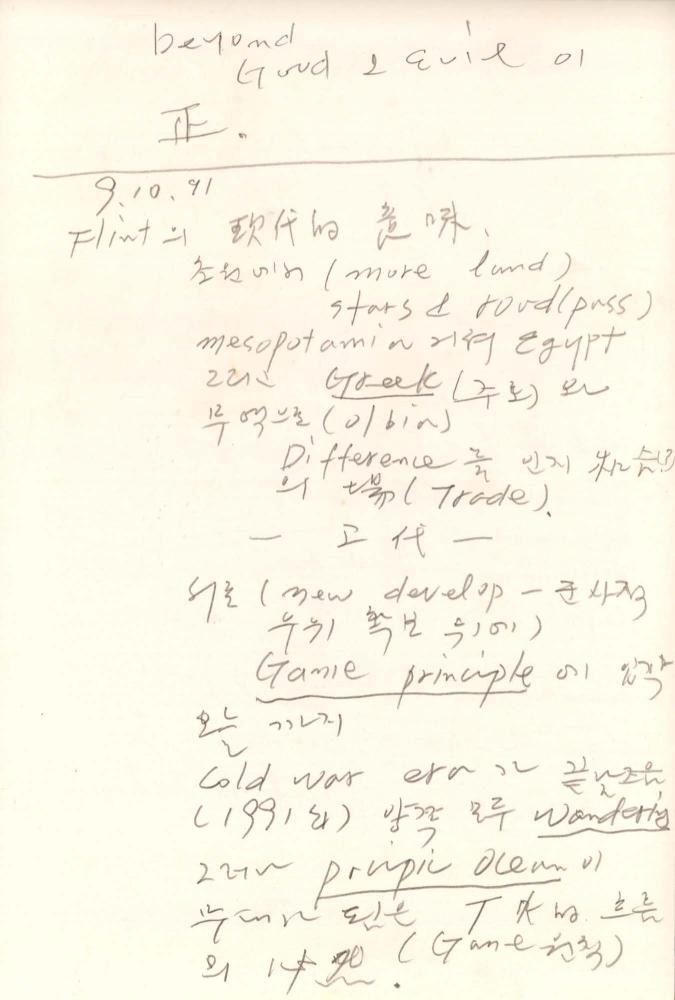 beyond
Good 와 Evil 이
正.
9.10.91
Flint 의 現代的 意味.
초원에서 (more land)
stars 와 road (pass)
mesopotamia 거쳐 Egypt
그리고 Greek (주로) 와
무역으로
Difference 를 인지
의 場 (Trade).
— 고代 —
서로 (new develop — 군사적
우위 확보 위에)
Game principle 에 입각
오늘 까지
Cold war era 가 끝난
(1991 年) 양쪽 모두 wondering
그러나 ocean 이
무대가 됨은 흐름
의 (Game 원칙)